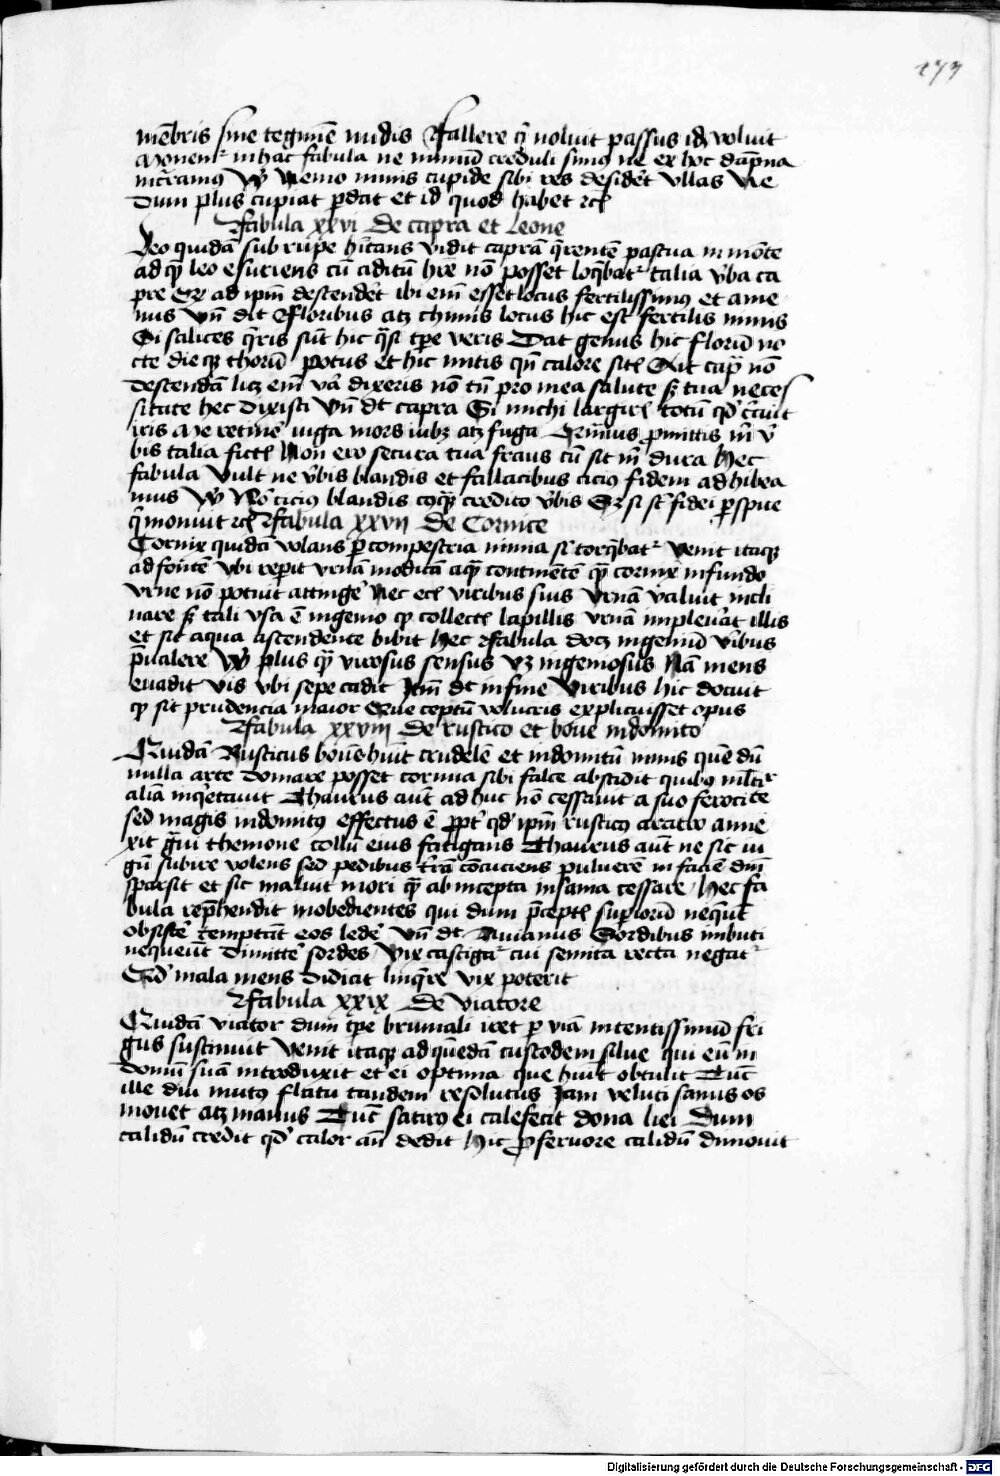 177
mēbris sine tegmīe nudis Fallere qͥ voluit passus idꝫ voluit
Monenͬ in hac fabula ne nimiū creduli simꝰ ne ex hoc dāpna
incͬramꝰ Vn̄ Nemo nimis cupide sibi res desideͬt vllas Ne
dum plus cupiat pͬdat et id quod habet ꝛcͭ
Fabula xxvi de capra et leone
Leo quidā sub rupe hītans vidit caprā qͬrentē pastua in mōte
ad qͣ leo esuriens cū aditū hͬe nō posset loqͬbatͬ talia vͬba ca
pre Qͬ ad ipm̄ descendeͬt ibi em̄ esset locus fertilissimꝰ et ame
nus Vn̄ dͭt Floribus atꝫ thimis locus hic est fertilis nimis
Si salices qͬris sūt hic qͣsi tp̄e veris Dat genus hic florū no
cte die qꝫ thorū potus et hic mitis qn̄ calore sitͭ Ait capͣ nō
descendā licꝫ em̄ vͬa dixeris nō tn̄ pro mea salute sꝫ tua neces
sitate hec dixisti Vn̄ dͭt capra Si michi largirͭ totū qͩ cͬauit
iris Me retineͬ iuga mors iubꝫ atꝫ fuga pͬmittis m̄ vͬ
bis talia fictͭ Non ero secura tua fraus cū sit m̄ dura Hec
fabula vult ne vͬbis blandis et fallacibus ciciꝰ fidem adhibea
mus Vn̄ No ciciꝰ blandis credito vͬbis Sꝫ si st̄ fidei pͬspue
qͥ monuit ꝛcͭ Fabula xxvii de Cornice
Cornix quidā volans pͬ compestria nimia siͭ torqͬbatͬ Venit itaqꝫ
ad fontē vbi repͬit vrnā modicā aqͣ continētē qͣ cornix in fundo
vrne nō potuit attingeͬ Nec ecͭ viribus suis vrnā valuit incli
nare sꝫ tali vsa ē ingenio qͩ collectͭ lapillis vrnā impleuͬat illis
et sic aqua ascendente bibit Hec Fabula docꝫ ingeniū vͬibus
p̄ualere Vn̄ plus qͣ virosus sensus vꝫ ingeniosus Nā mens
euadit vis vbi sepe cadit Itm̄ dͭt in fine Viribus hic docuit
qͩ sit prudencia maior Que ceptū volucris explicuisset opus
Fabula xxviii de rustico et boue indomito
Quidā Rusticus bouē huit crudelē et indomitū nimis quē dū
nulla arte domare posset cornua sibi falce abscidit quibꝰ
aliā inqͥetauit Thaurus aut̄ ad huc nō cessauit a suo ferocite
sed magis indomitꝰ effectus ē pͬptͬ qͩ ipm̄ rusticꝰ aratro anne
xit gͣui themone collū eius fatigans Thaurus aut̄ ne sic iu
gū subire volens sed pedibus tͬrā cōcuciens puluerē in faciē dm̄
sparsit et sic maluit mori qͣ ab incepta insania cessare Hec fa
bula reph̄endit inobedientes qui dum p̄ceptͭ supͬiorū neqͬūt
obsisteͬ temptāt eos ledeͬ Vn̄ dͭt Auianus Sordibus imbuti
nequeūt dimitteͬ sordes Vix castigatͬ cui semita recta negatͬ
Qͩ mala mens didicit linqͬre vix poterit
Fabula xxix de viatore
Quidā viator dum tp̄e brumali iret pͬ viā intentissimū fri
gus sustinuit Venit itaqꝫ ad quēdā custodem silue qui eū in
domū suā introduxit et ei optima que huit obtulit Tūc
ille diu mutꝰ flatu tandem resolutus Iam veluti sanus os
mouet atꝫ manus Tūc satirꝰ ei calefecit dona liei Dum
calidū credit qͩ calor an̄ dedit Hic pͬ feruore calidū dimouit
Digitalisierung gefördert durch die Deutsche Forschungsgemeinschaft - DFG